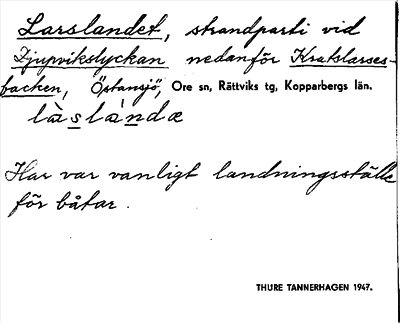 Larslandet, strandparti vid
Djupvikslyckan nedanför Kratslarses-
backen, Östansjö, Ore sn, Rättviks tg, Kopparbergs län.
là̀slàndæ
Har var vanligt landningsställe
för båtar.
THURE TANNERHAGEN 1947.